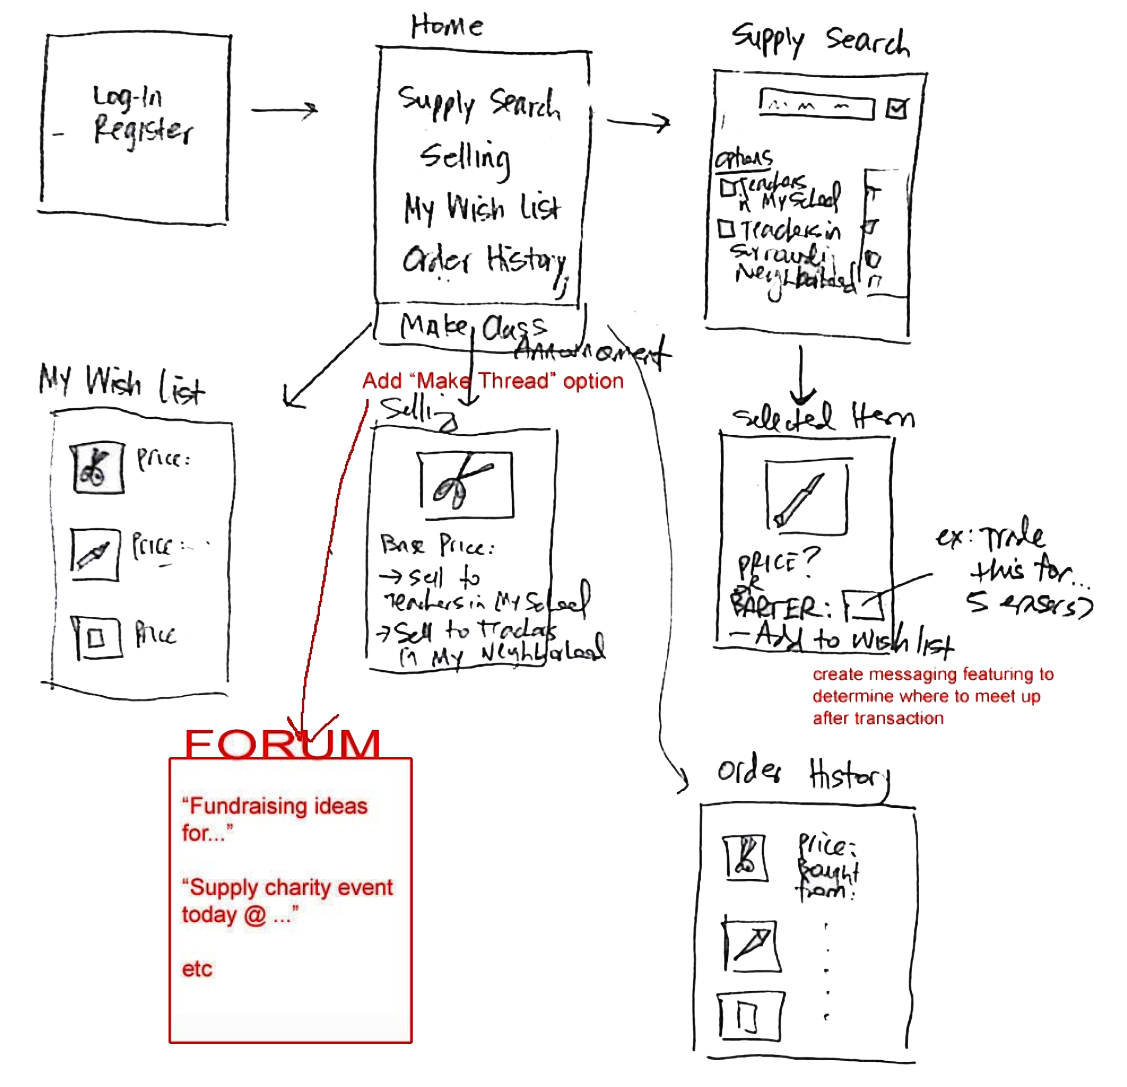 Log-In
Register
Home
Supply Search
Selling
My Wish List
Order History
Make Class
Announcement
Add “Make Thread” option
Supply Search
options
Teachers
in My School
Teachers in
Surrounding
Neighborhood
My Wish List
Price:
Price:
Price
Selling
Base Price:
→ Sell to
Teachers in My School
→ Sell to Teachers
in My Neighborhood
Selected Item
PRICE?
OR
BARTER:
- Add to Wish list
ex: Trade
this for...
5 erasers?
create messaging featuring to
determine where to meet up
after transaction
FORUM
“Fundraising ideas
for...”
“Supply charity event
today @ ...”
etc
Order History
Price:
Bought
from: